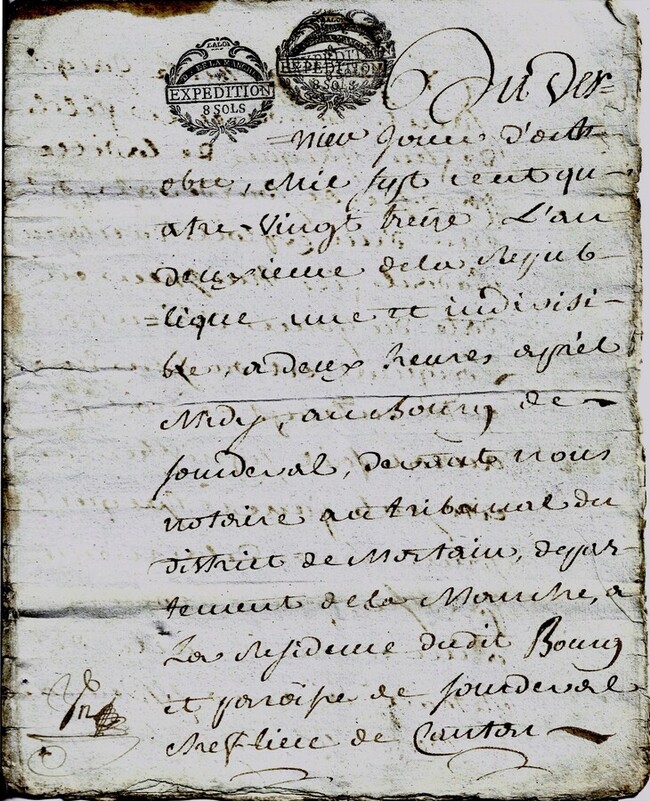 LALOI
DEP. DE LA MANCHE
EXPEDITION
8 SOLS
EXPEDITION
8 SOLS
Du der=
nier Jour d'octo
obre, Mil sept cent qu-
atre-Vingt treize, L'an
deuxieme de la Repub-
=lique une et indivisi-
ble, a deux heures aprés
Midy, au Bourg de
Sourdeval, devant nous
notaire au tribunal du
district de Mortain, depar-
tement de la Manche, a
La Residence dudit Bourg
et paroisse de Sourdeval
chef lieu de Canton